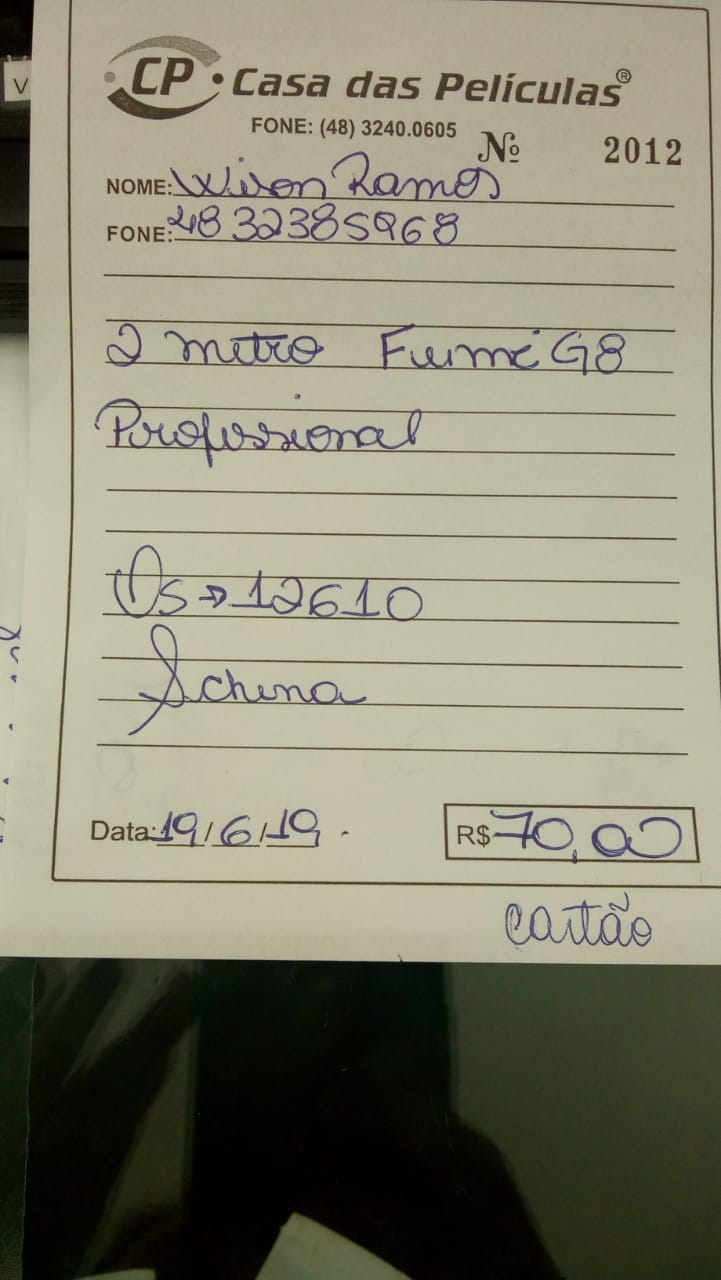 CP · Casa das Películas®
FONE: (48) 3240.0605
Nº 2012
NOME: Wison Ramos
FONE: 48 32385968
2 metro Fumé G8
Profissional
Os → 12610
Schena
Data: 19/6/19.
R$ 70,00
cartão
V